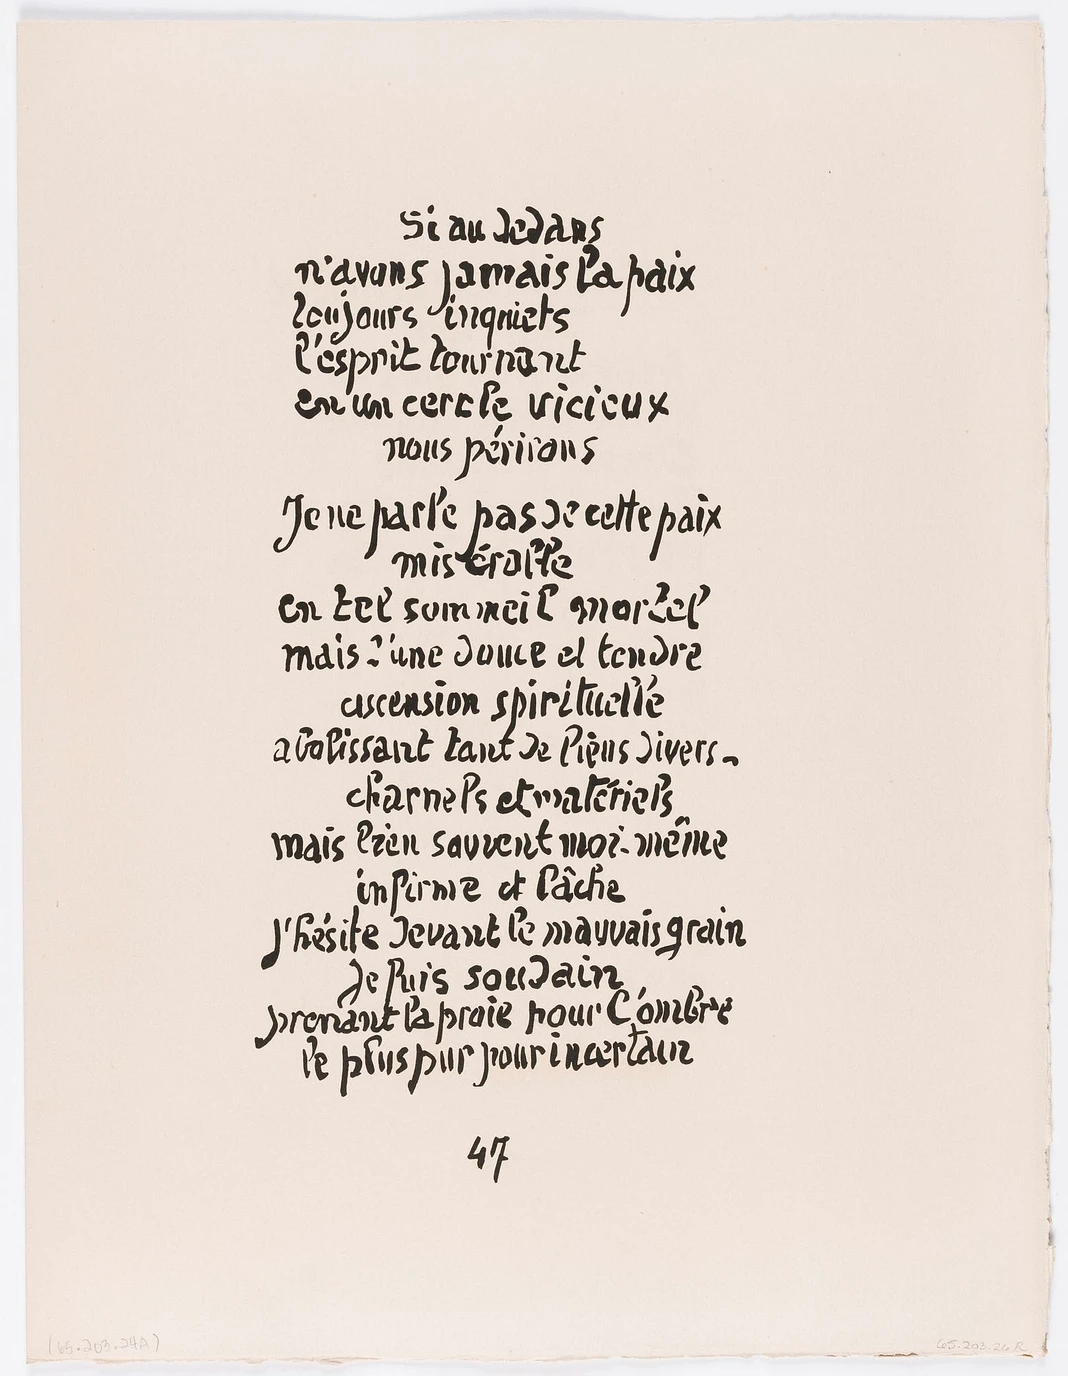 Si au dedans
n'avons jamais la paix
toujours inquiets
l'esprit tournant
en un cercle vicieux
nous périrons
Je ne parle pas de cette paix
misérable
en tel sommeil mortel
mais d'une douce et tendre
ascension spirituelle
abolissant tant de liens divers -
charnels et matériels
mais bien souvent moi-même
infirme et lâche
j'hésite devant le mauvais grain
je fuis soudain
prenant la proie pour l'ombre
le plus pur pour incertain
47
(65.203.24A)
65.203.26R